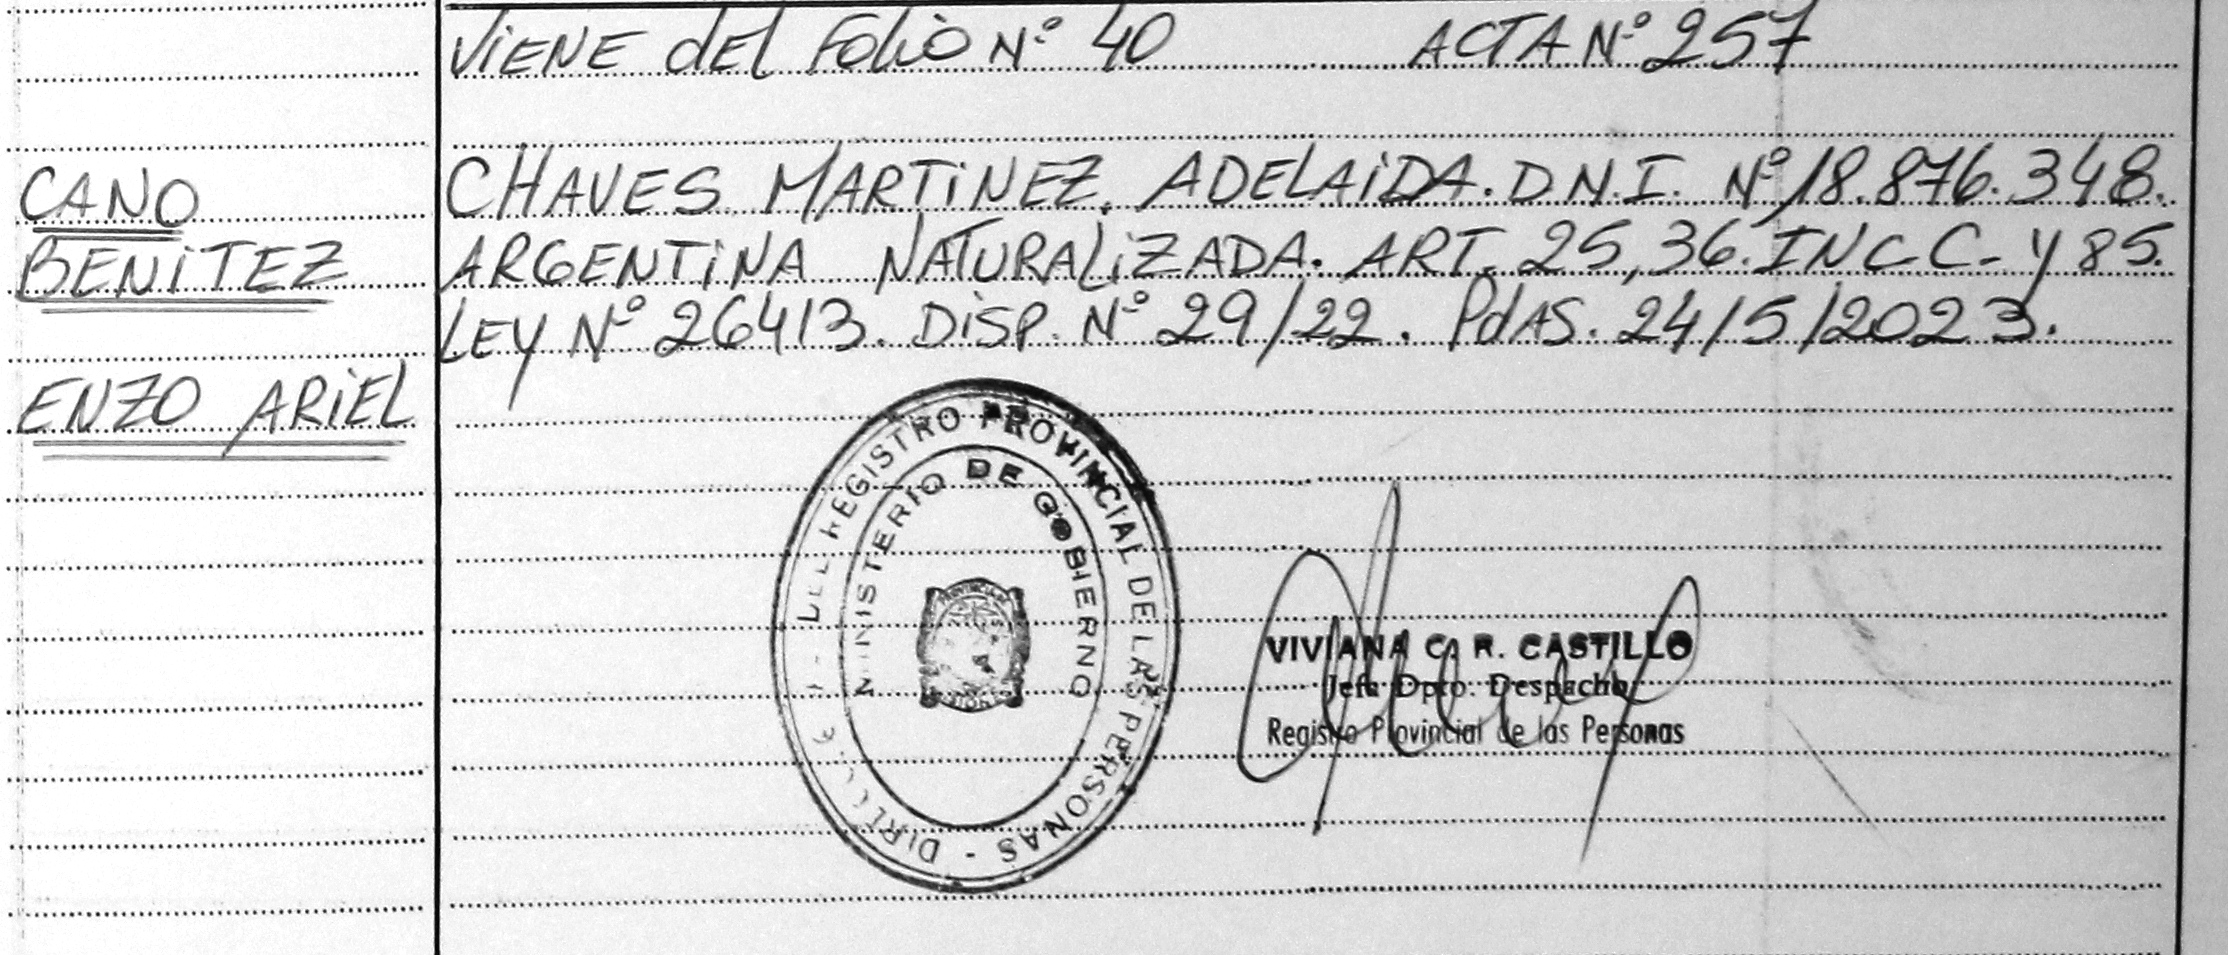 ViENE dEl Folio Nº 40 ACTA Nº 257
CANO
BENiTEZ
ENZO ARiEL
CHAVES MARTiNEZ, ADELAiDA. D.N.I. Nº 18.876.348.
ARGENTiNA NATURALiZADA. ART. 25, 36. INC C- y 85.
LEY Nº 26413. DiSP. Nº 29/22. PdAS. 24/5/2023.
REGISTRO PROVINCIAL DE LAS PERSONAS -
MINISTERIO DE GOBIERNO
VIVIANA C. R. CASTILLO
Jefa Dpto. Despacho
Registro Provincial de las Personas